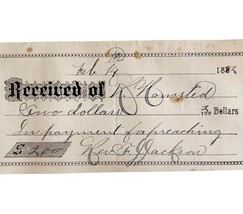 Feb 14 188
Received of Homsted
Two dollars Dollars
In payment for preaching
$ 2.00 Rev. F. Jackson